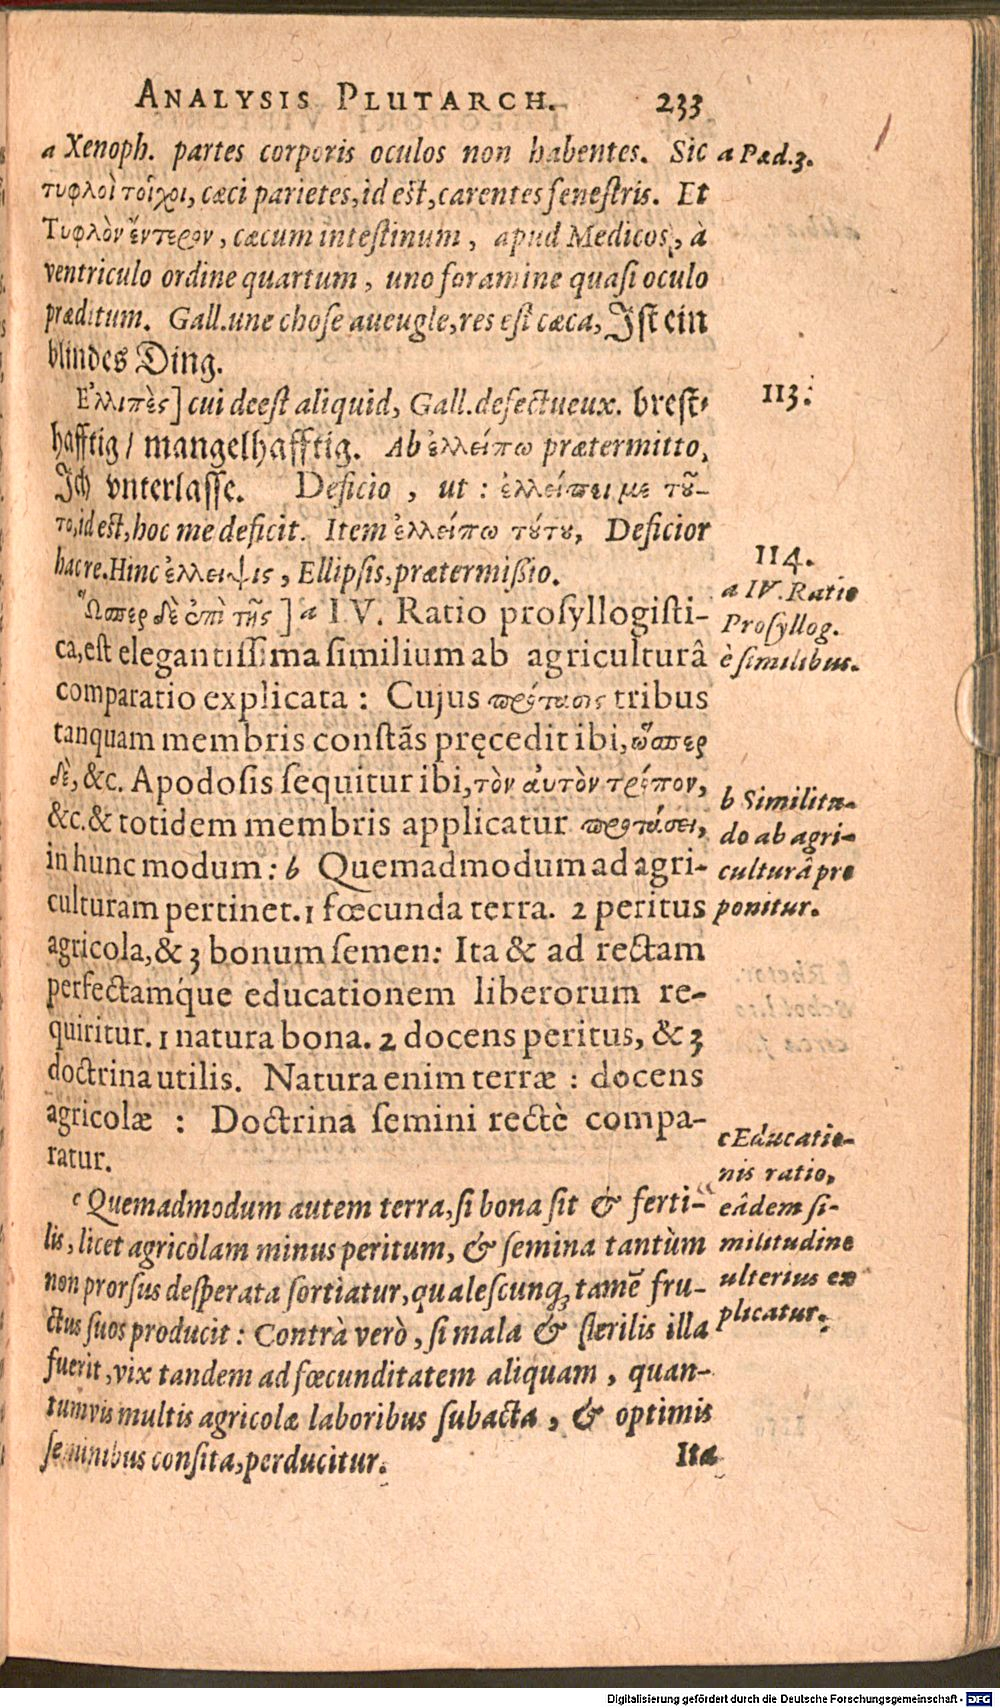 ANALYSIS PLUTARCH. 233
a Xenoph. partes corporis oculos non habentes. Sic
τυφλοὶ τοῖχοι, cæci parietes, id est, carentes fenestris. Et
Τυφλὸν ἔντερον, cæcum intestinum, apud Medicos, à
ventriculo ordine quartum, uno foramine quasi oculo
præditum. Gall. une chose aveugle, res est cæca, Jst ein
blindes Ding.
Ἐλλιπὲς] cui deest aliquid, Gall. defectueux. brest-
hafftig / mangelhafftig. Ab ἐλλείπω prætermitto,
Jch vnterlasse. Deficio, ut: ἐλλείπει με τοῦ-
το, id est, hoc me deficit. Item ἐλλείπω τούτου, Deficior
hac re. Hinc ἐλλειψις, Ellipsis, prætermißio.
Ὥσπερ δὲ ἐπὶ τῆς] a IV. Ratio prosyllogisti-
ca, est elegantissima similium ab agriculturâ
comparatio explicata: Cujus πρότασις tribus
tanquam membris constãs pręcedit ibi, ὥσπερ
δὲ, &c. Apodosis sequitur ibi, τὸν αὐτὸν τρόπον,
&c. & totidem membris applicatur προτάσει,
in hunc modum: b Quemadmodum ad agri-
culturam pertinet. 1 fœcunda terra. 2 peritus
agricola, & 3 bonum semen: Ita & ad rectam
perfectamq́ue educationem liberorum re-
quiritur. 1 natura bona. 2 docens peritus, & 3
doctrina utilis. Natura enim terræ: docens
agricolæ: Doctrina semini rectè compa-
ratur.
c Quemadmodum autem terra, si bona sit & ferti-
lis, licet agricolam minus peritum, & semina tantùm
non prorsus desperata sortiatur, qualescunq; tamẽ fru-
ctus suos producit: Contrà verò, si mala & sterilis illa
fuerit, vix tandem ad fœcunditatem aliquam, quan-
tumvis multis agricolæ laboribus subacta, & optimis
seminibus consita, perducitur.
Ita
a Pæd. 3.
113.
114.
a IV. Ratio
Prosyllog.
è similibus.
b Similitu-
do ab agri-
culturâ pro
ponitur.
c Educatio-
nis ratio,
eâdem si-
militudine
ulterius ex
plicatur.
Digitalisierung gefördert durch die Deutsche Forschungsgemeinschaft - DFG